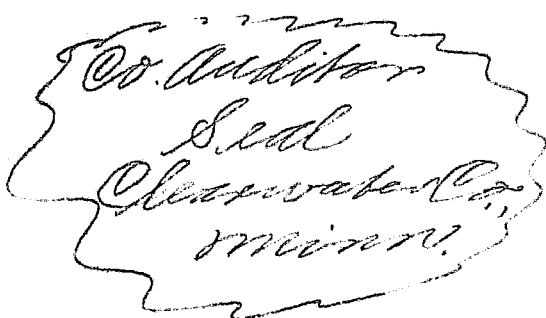 Co. Auditor
Seal
Clearwater Co.,
Minn.